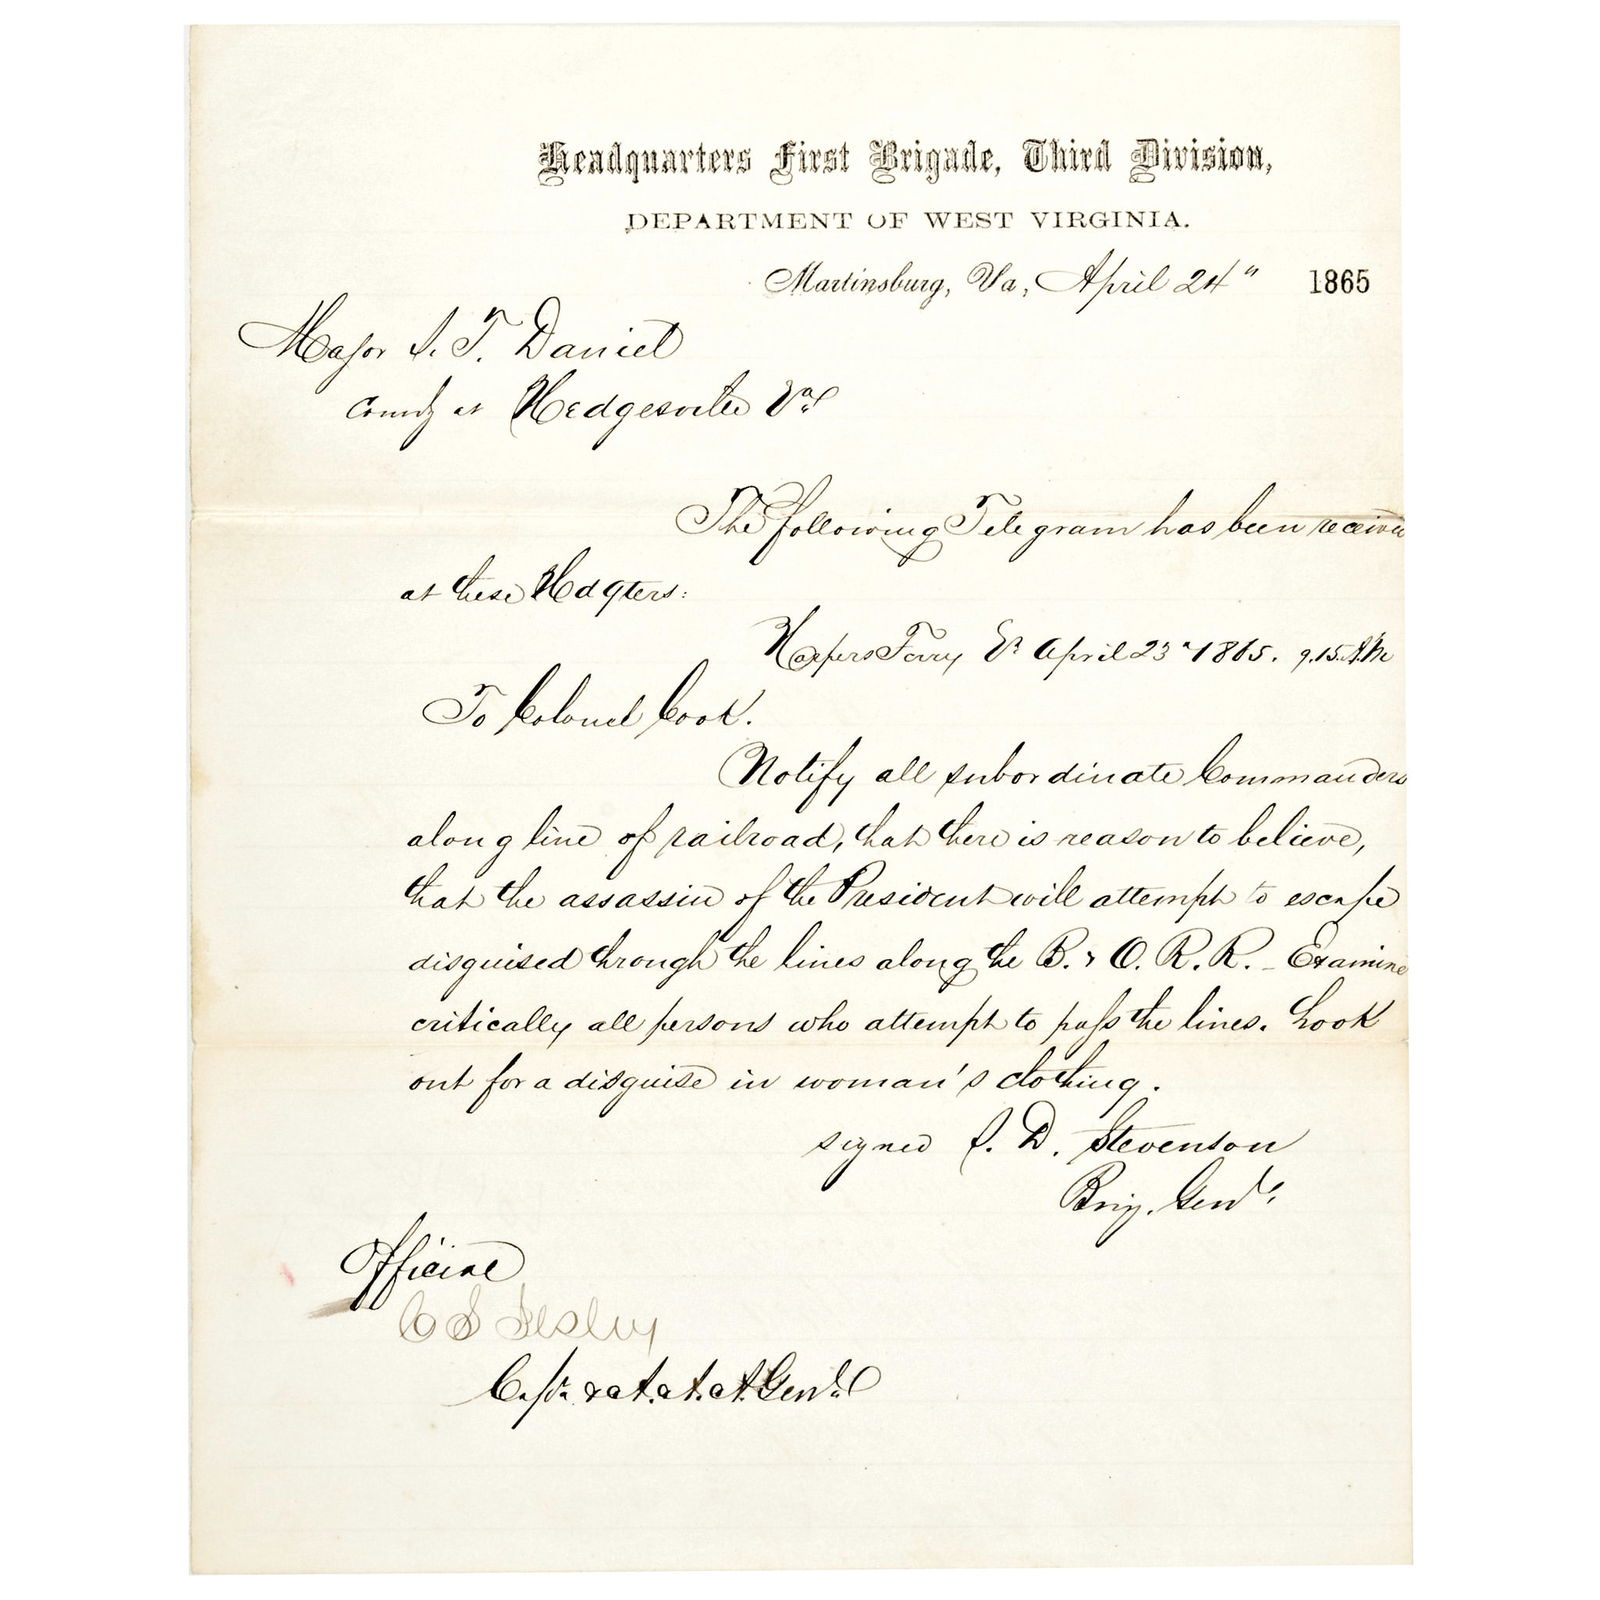 Headquarters First Brigade, Third Division,
DEPARTMENT OF WEST VIRGINIA.
Martinsburg, Va, April 24" 1865
Major I. T. Daniel
Comdg at Hedgesville Va
The following Telegram has been receive
at these Hdqters:
Harpers Ferry Va April 23" 1865. 9.15. A.M
To Colonel Cook.
Notify all subordinate Commanders
along line of railroad, that there is reason to believe,
that the assassin of the President will attempt to escape
disguised through the lines along the B. & O. R. R. - Examine
critically all persons who attempt to pass the lines. Look
out for a disguise in woman's clothing.
signed J. D. Stevenson
Brig. Genl.
Official
C S
Capt. & A.A.A. Genl.